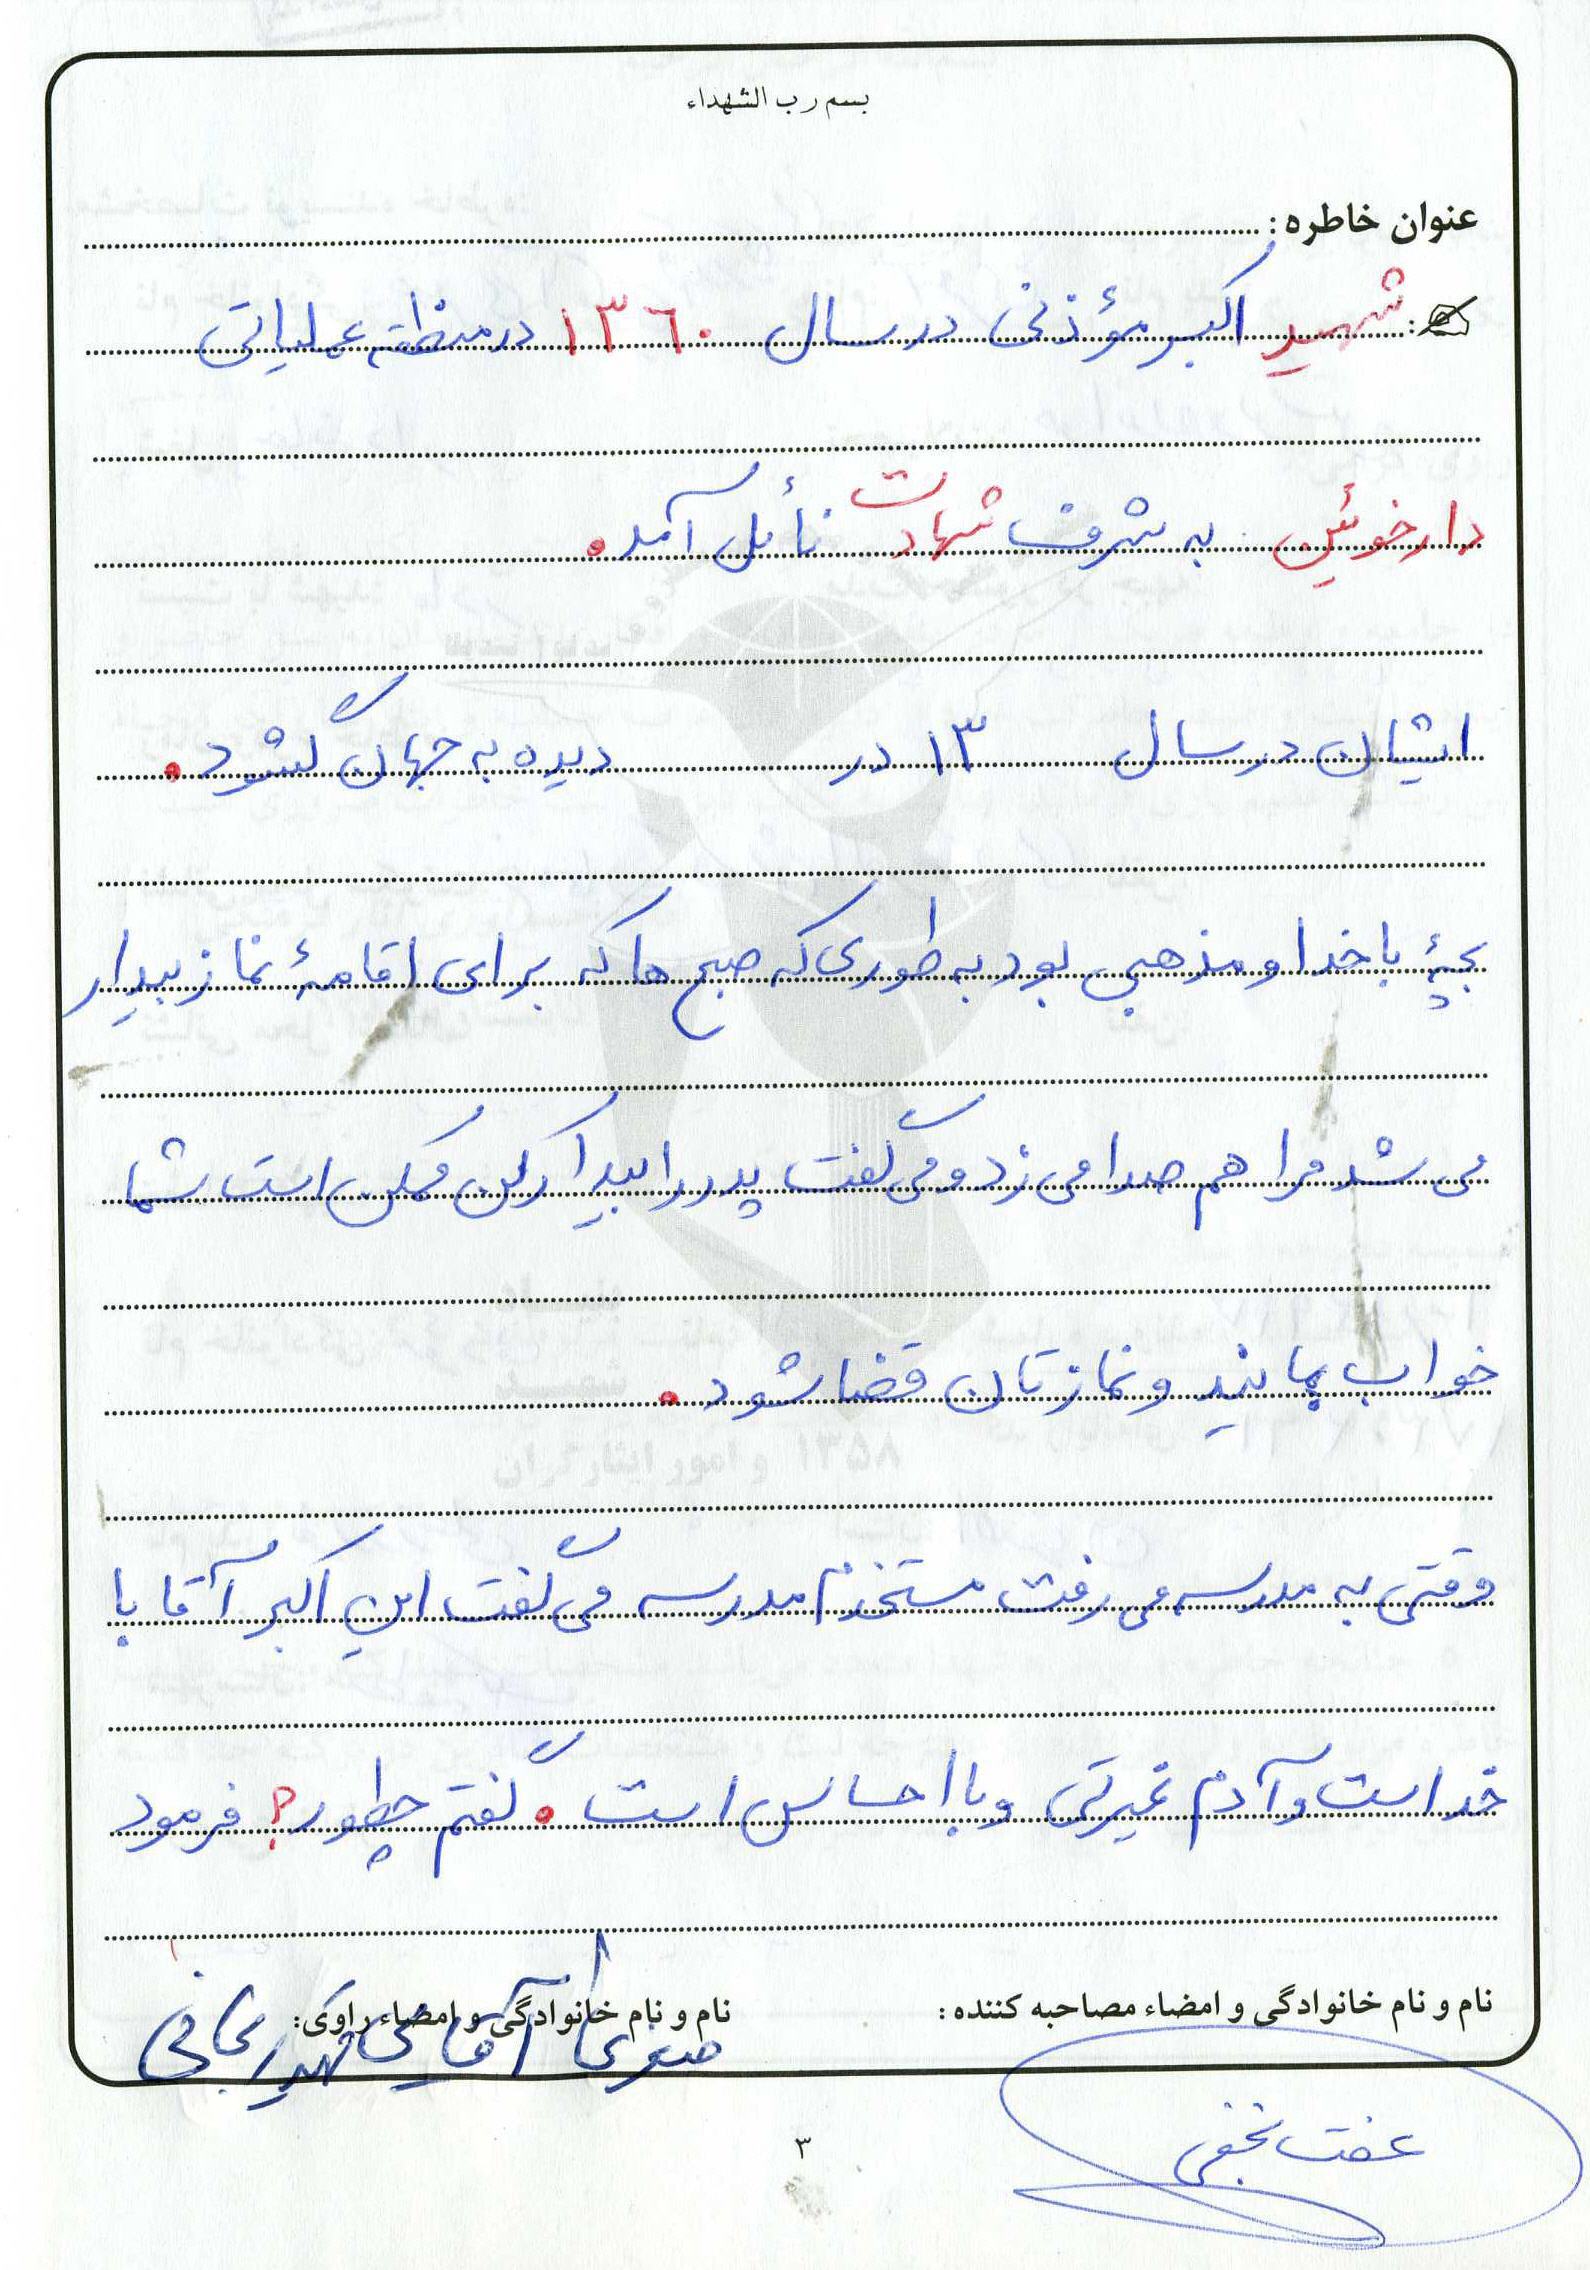 بسم رب الشهداء
عنوان خاطره:
شهید اکبر مؤذنی در سال ۱۳۶۰ در منطقه عملیاتی
دارخوئین به شرف شهادت نائل آمد.
ایشان در سال ۱۳ در دیده به جهان گشود.
بچهٔ با خدا و مذهبی بود به طوری که صبح ها که برای اقامهٔ نماز بیدار
می شد مرا هم صدا می زد و می گفت پدر را بیدار کن ممکن است شما
خواب بمانید و نمازتان قضا شود.
وقتی به مدرسه می رفت مستخدم مدرسه می گفت این اکبر آقا با
خداست و آدم غیرتی و با احساس است. گفتم چطور؟ فرمود
نام و نام خانوادگی و امضاء مصاحبه کننده: نام و نام خانوادگی و امضاء راوی:
صغری آقایی
عفت نجفی
۳